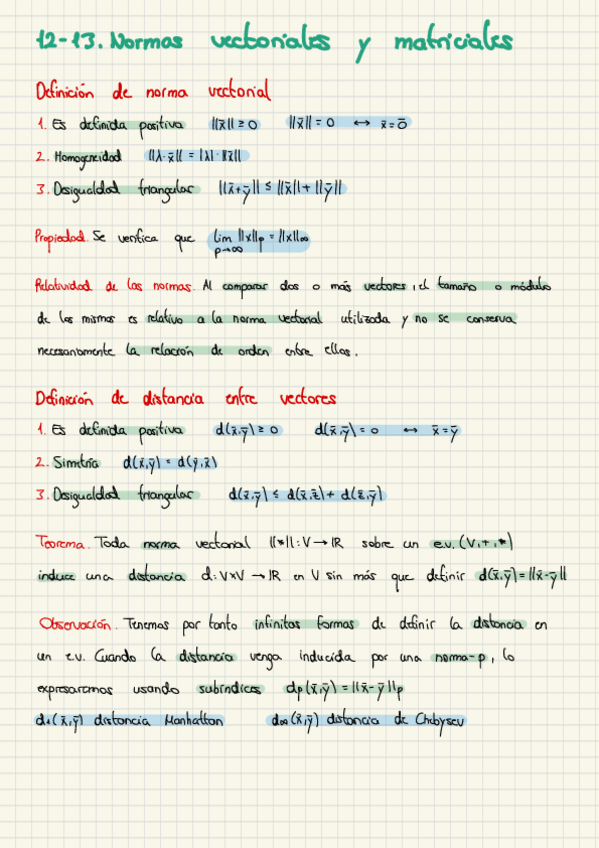 12-13. Normas vectoriales y matriciales
Definición de norma vectorial
1. Es definida positiva ||x̄|| ≥ 0 ||x̄|| = 0 ↔ x̄ = ō
2. Homogeneidad ||λ·x̄|| = |λ|·||x̄||
3. Desigualdad triangular ||x̄+ȳ|| ≤ ||x̄|| + ||ȳ||
Propiedad. Se verifica que lim ||x||p = ||x||∞
p→∞
Relatividad de las normas. Al comparar dos o más vectores, el tamaño o módulo
de los mismos es relativo a la norma vectorial utilizada y no se conserva
necesariamente la relación de orden entre ellos.
Definición de distancia entre vectores
1. Es definida positiva d(x̄,ȳ) ≥ 0 d(x̄,ȳ) = 0 ↔ x̄ = ȳ
2. Simetría d(x̄,ȳ) = d(ȳ,x̄)
3. Desigualdad triangular d(x̄,ȳ) ≤ d(x̄,z̄) + d(z̄,ȳ)
Teorema. Toda norma vectorial ||*||: V → IR sobre un e.v. (V,+,*)
induce una distancia d: V×V → IR en V sin más que definir d(x̄,ȳ) = ||x̄-ȳ||
Observación. Tenemos por tanto infinitas formas de definir la distancia en
un e.v. Cuando la distancia venga inducida por una norma-p, lo
expresaremos usando subíndices dp(x̄,ȳ) = ||x̄-ȳ||p
d1(x̄,ȳ) distancia Manhattan d∞(x̄,ȳ) distancia de Chebysev